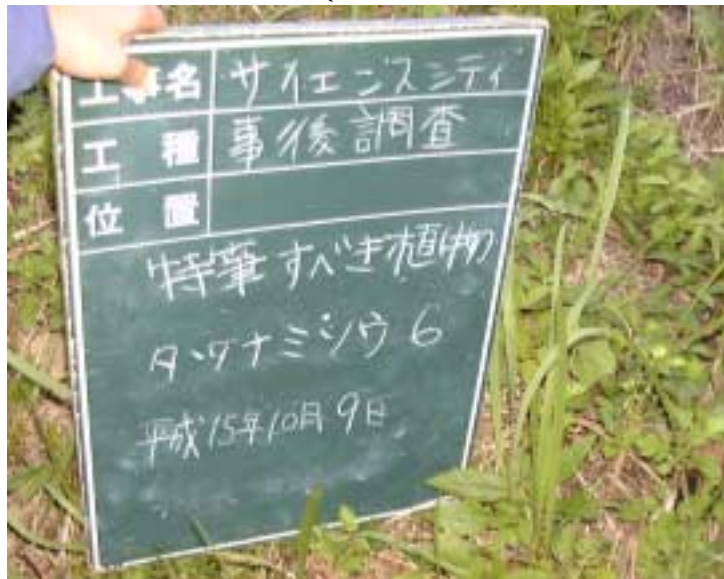 工事名 サイエンスシティ
工種 事後調査
位置
特筆すべき植物
タツナミソウ 6
平成15年10月9日